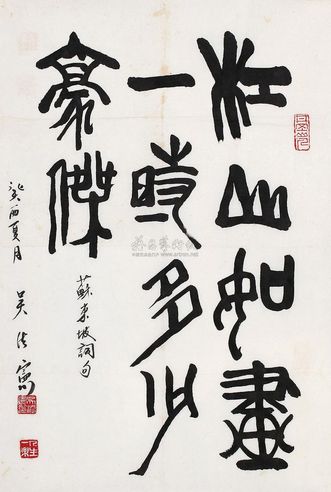 江山如畫
一時多少
豪傑
蘇東坡詞句
癸酉夏月 吴